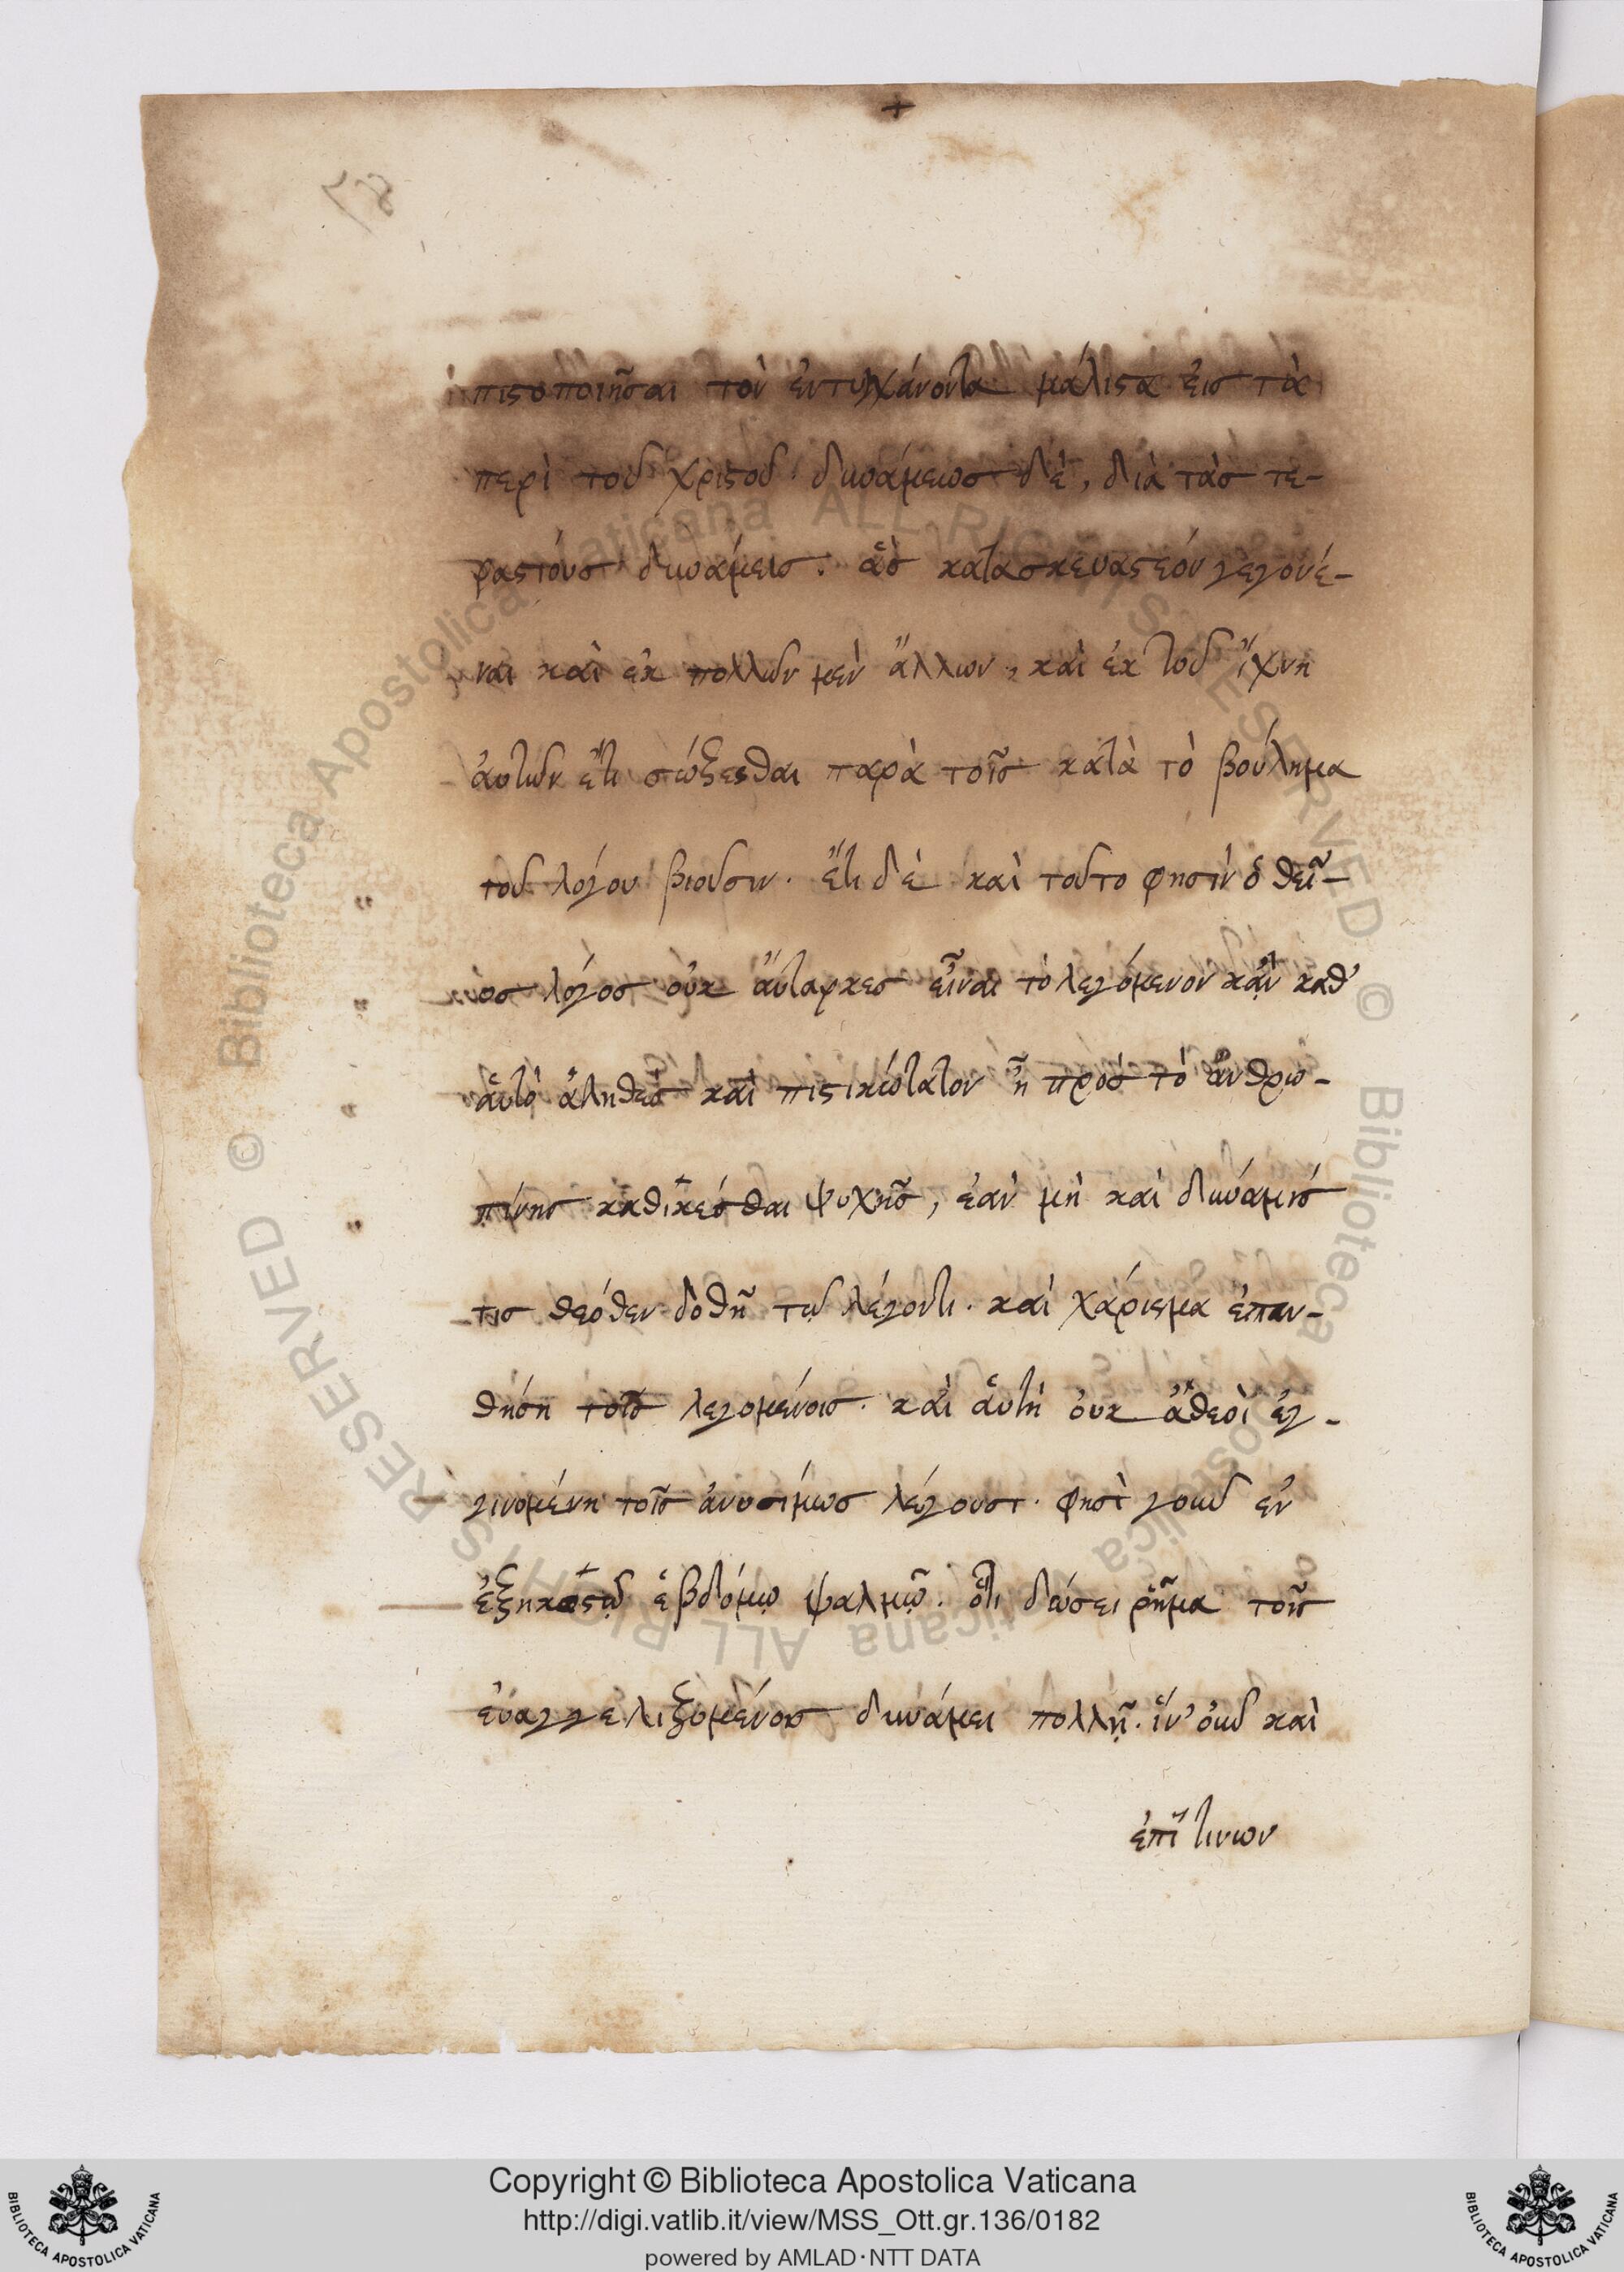 78
+
πιστοποιῆσαι τὸν ἐντυγχάνοντα μάλιστα εἰς τὰ
περὶ τοῦ χριστοῦ· δυνάμεως δὲ, διὰ τὰς τε-
ραστίους δυνάμεις· ἃς κατασκευαστέον γεγονέ-
ναι καὶ ἐκ πολλῶν μὲν ἄλλων, καὶ ἐκ τοῦ ἴχνη
αὐτῶν ἔτι σώζεσθαι παρὰ τοῖς κατὰ τὸ βούλημα
τοῦ λόγου βιοῦσιν. ἔτι δὲ καὶ τοῦτο φησὶν ὁ θεῖ-
ος λόγος οὐκ αὔταρκες εἶναι τὸ λεγόμενον κἂν καθ'
αὑτὸ ἀληθὲς καὶ πιστικώτατον ἦ πρὸς τὸ ἀνθρω-
πίνης καθικέσθαι ψυχῆς, ἐὰν μὴ καὶ δύναμίς
τις θεόθεν δοθῇ τῷ λέγοντι· καὶ χάρισμα ἐπαν-
θήσῃ τοῖς λεγομένοις· καὶ αὕτη οὐκ ἀθεεὶ ἐγ-
γινομένη τοῖς ἀνυσίμως λέγουσι· φησὶ γοῦν ἐν
ἑξηκοστῷ ἑβδόμῳ ψαλμῷ· ὅτι δώσει ῥῆμα τοῖς
εὐαγγελιζομένοις δυνάμει πολλῇ· ἵν' οὖν καὶ
ἐπί τινων
Copyright © Biblioteca Apostolica Vaticana
http://digi.vatlib.it/view/MSS_Ott.gr.136/0182
powered by AMLAD·NTT DATA
BIBLIOTECA APOSTOLICA VATICANA
BIBLIOTECA APOSTOLICA VATICANA
© Biblioteca Apostolica Vaticana ALL RIGHTS RESERVED
© Biblioteca Apostolica Vaticana ALL RIGHTS RESERVED